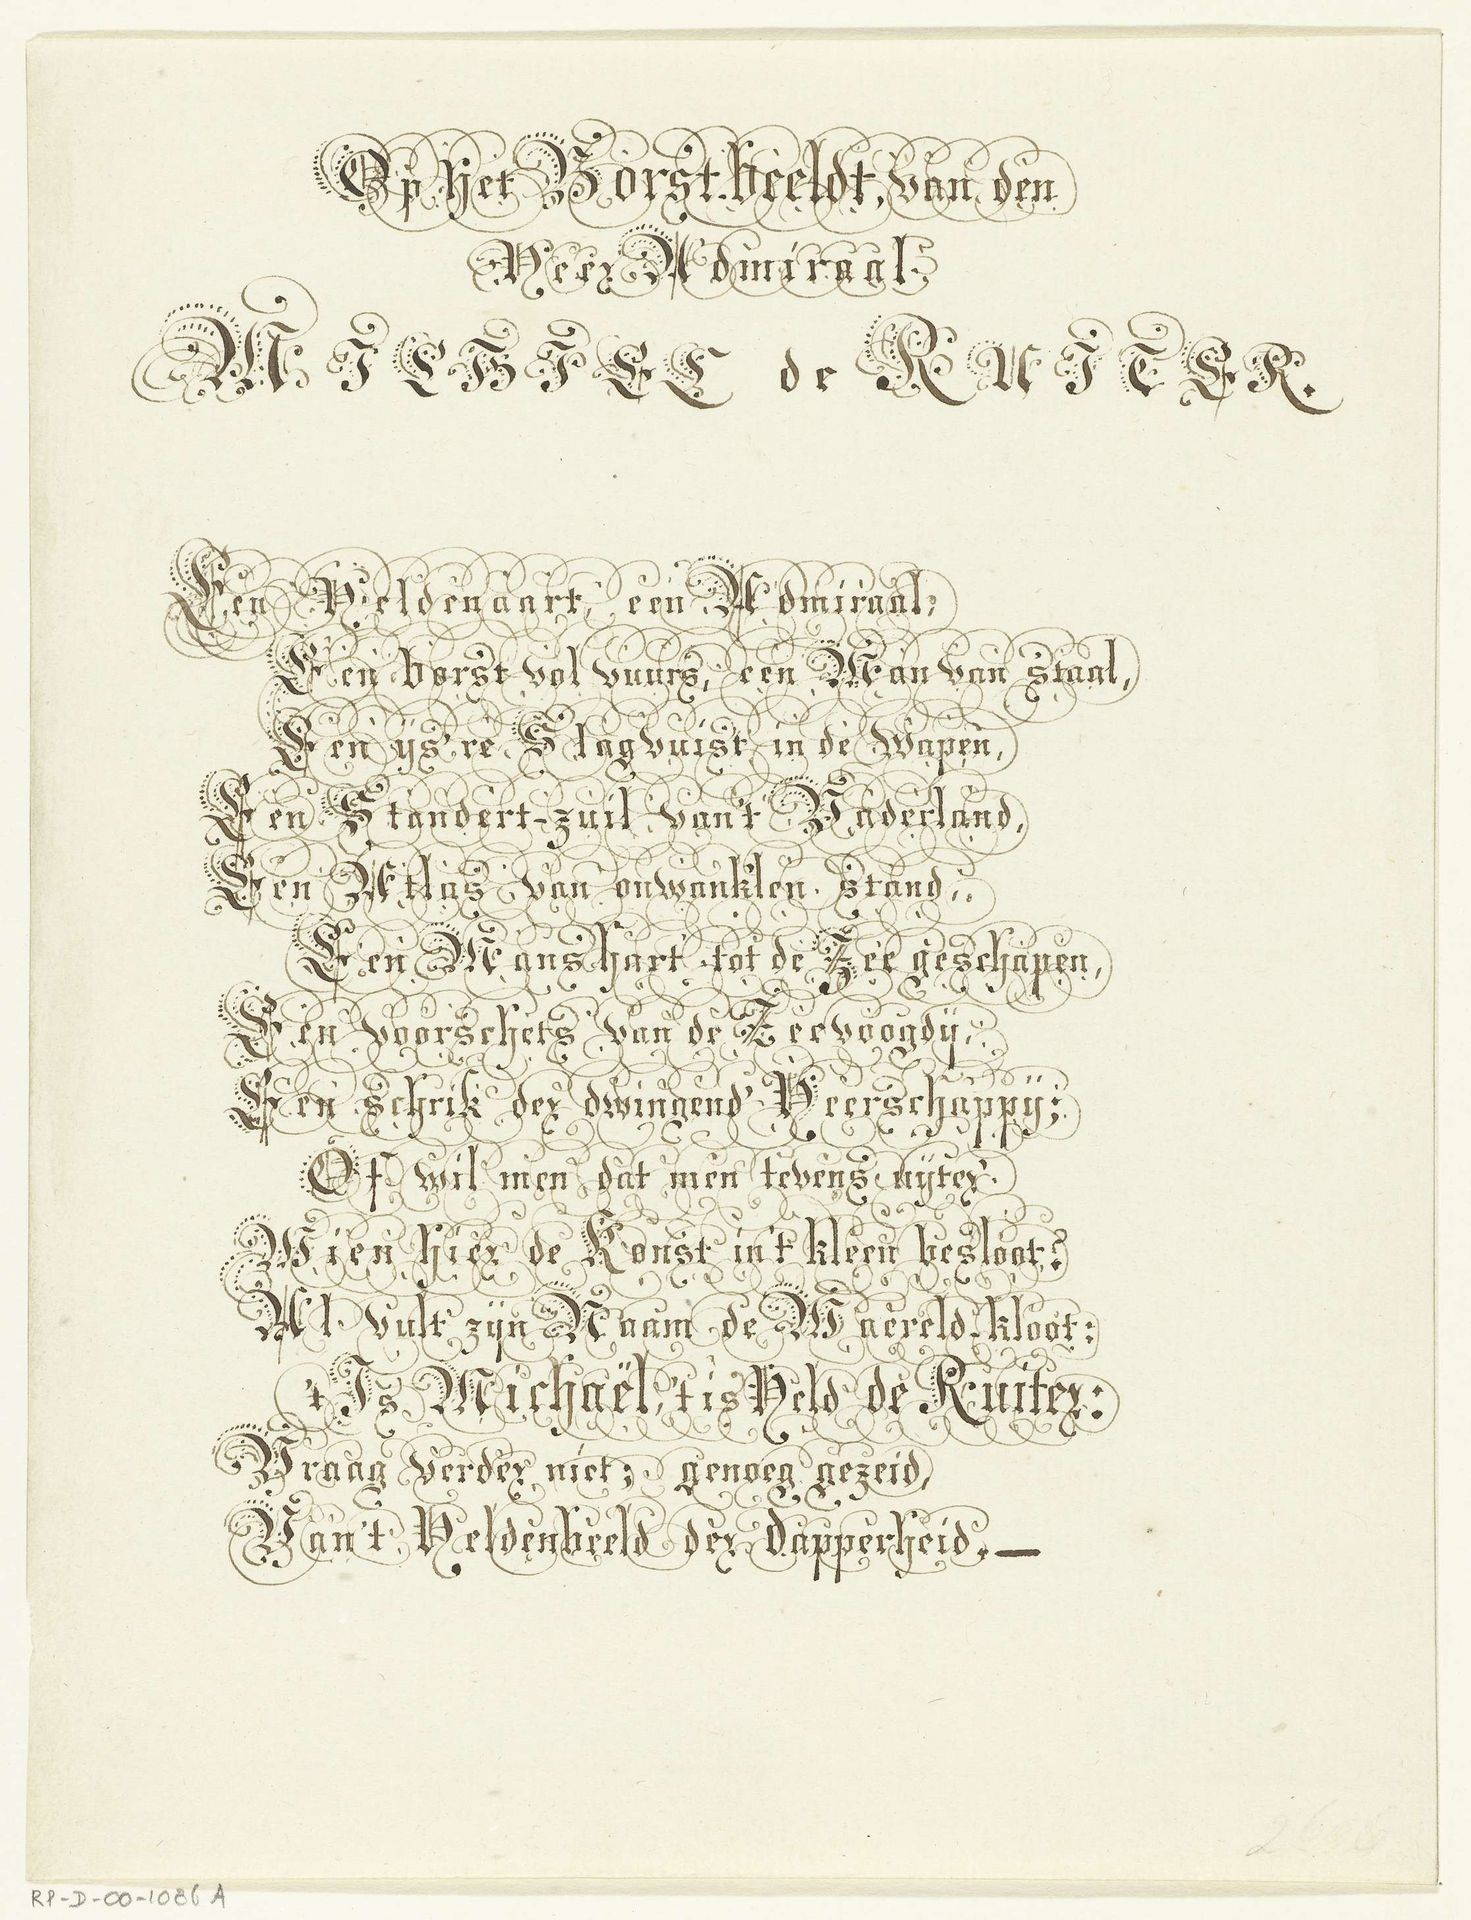 Op het Borst-beeldt, van den
Heer Admiraal.
MICHIEL de RUITER.
Een Heldenaart, een Admiraal,
Een borst vol vuurs, een Man van staal,
Een ys're Slagvuist in de wapen,
Een Standert-zuil van't Vaderland,
Een Atlas van onwanklen stand,
Een Mans hart tot de Zee geschapen,
Een voorschets van de Zeevoogdij,
Een schrik der dwingend' Heerschappÿ;
Of wil men dat men tevens uyter
Wien hier de Konst in't kleen besloot?
Al vult zijn Naam de Waereld-kloot:
't Is Michaël, 't is Held de Ruiter:
Vraag verder niet; genoeg gezeid,
Van't Heldenbeeld der Dapperheid. —
RP-D-00-1086 A